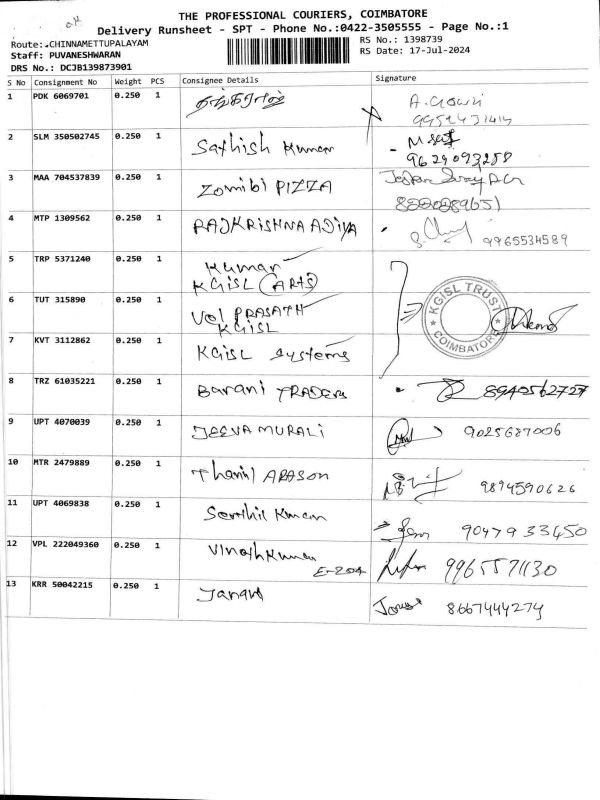 THE PROFESSIONAL COURIERS, COIMBATORE
Delivery Runsheet - SPT - Phone No.:0422-3505555 - Page No.:1
Route: CHINNAMETTUPALAYAM
RS No.: 1398739
Staff: PUVANESHWARAN
RS Date: 17-Jul-2024
DRS No.: DCJB139873901
S No Consignment No Weight PCS Consignee Details Signature
1 PDK 6069701 0.250 1 தங்கராஜ்
2 SLM 350502745 0.250 1 Sathish Kumar 9629093288
3 MAA 704537839 0.250 1 Zomibi PIZZA
4 MTP 1309562 0.250 1 RAJKRISHNA ADIYA 9965534589
5 TRP 5371240 0.250 1 Kumar
KGISL (ARTS)
6 TUT 315890 0.250 1 VOL PRASATH
KGISL
KGISL TRUST
COIMBATORE
7 KVT 3112862 0.250 1 KGISL Systems
8 TRZ 61035221 0.250 1 Barani TRADERS 8940562727
9 UPT 4070039 0.250 1 JEEVA MURALI 9025687006
10 MTR 2479889 0.250 1 Thamil ARASON 9894590626
11 UPT 4069838 0.250 1 Senthil Kumar 9047933450
12 VPL 222049360 0.250 1 Vinoth Kumar
E-204 9965571130
13 KRR 50042215 0.250 1 8667444274